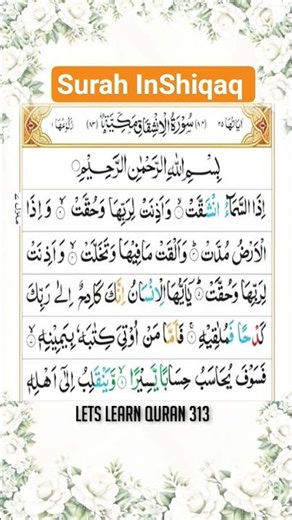 Surah InShiqaq
اٰيَاتُهَا ٢٥ (٨٤) سُوْرَةُ الْاِنْشِقَاقِ مَكِّيَّةٌ (٨٣) رُكُوْعُهَا ١
بِسْمِ اللّٰهِ الرَّحْمٰنِ الرَّحِيْمِ
اِذَا السَّمَآءُ انْشَقَّتْ ۙ وَاَذِنَتْ لِرَبِّهَا وَحُقَّتْ ۙ وَاِذَا
الْاَرْضُ مُدَّتْ ۙ وَاَلْقَتْ مَا فِيْهَا وَتَخَلَّتْ ۙ وَاَذِنَتْ
لِرَبِّهَا وَحُقَّتْ ؕ يٰۤاَيُّهَا الْاِنْسَانُ اِنَّكَ كَادِحٌ اِلٰى رَبِّكَ
كَدْحًا فَمُلٰقِيْهِ ۚ فَاَمَّا مَنْ اُوْتِيَ كِتٰبَهٗ بِيَمِيْنِهٖ ۙ
فَسَوْفَ يُحَاسَبُ حِسَابًا يَّسِيْرًا ۙ وَّيَنْقَلِبُ اِلٰٓى اَهْلِهٖ
LETS LEARN QURAN 313